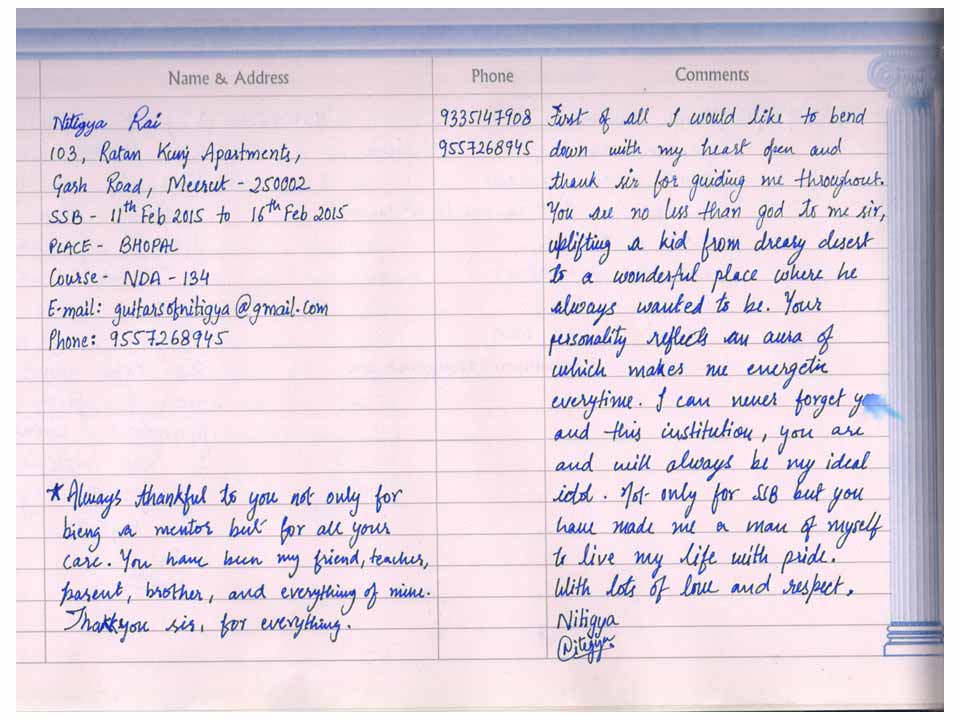 Name & Address
Phone
Comments
Nitigya Rai
103, Ratan Kunj Apartments,
Garh Road, Meerut - 250002
SSB - 11th Feb 2015 to 16th Feb 2015
PLACE - BHOPAL
Course - NDA - 134
E-mail: guitarsofnitigya@gmail.com
Phone: 9557268945
*Always thankful to you not only for
bieng a mentor but for all your
care. You have been my friend, teacher,
parent, brother, and everything of mine.
Thank you sir, for everything.
9335147908
9557268945
First of all I would like to bend
down with my heart open and
thank sir for guiding me throughout.
You are no less than god to me sir,
uplifting a kid from dreary desert
to a wonderful place where he
always wanted to be. Your
personality reflects an aura of
which makes me energetic
everytime. I can never forget
and this institution, you are
and will always be my ideal
idol. Not only for SSB but you
have made me a man of myself
to live my life with pride.
With lots of love and respect.
Nitigya
Nitigya